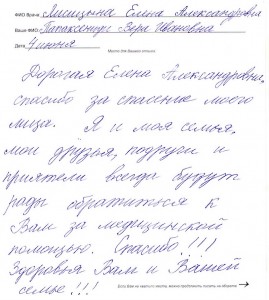 ФИО Врача Лисицына Елена Александровна
Ваше ФИО Вера Ивановна
Дата 4 июня
Место для Вашего отзыва
Дорогая Елена Александровна,
спасибо за спасение моего
лица. Я и моя семья,
мои друзья, подруги и
приятели всегда будут
рады обратиться к
Вам за медицинской
помощью. Спасибо!!!
Здоровья Вам и Вашей
семье!!!
Если Вам не хватило места, можно продолжить писать на обороте